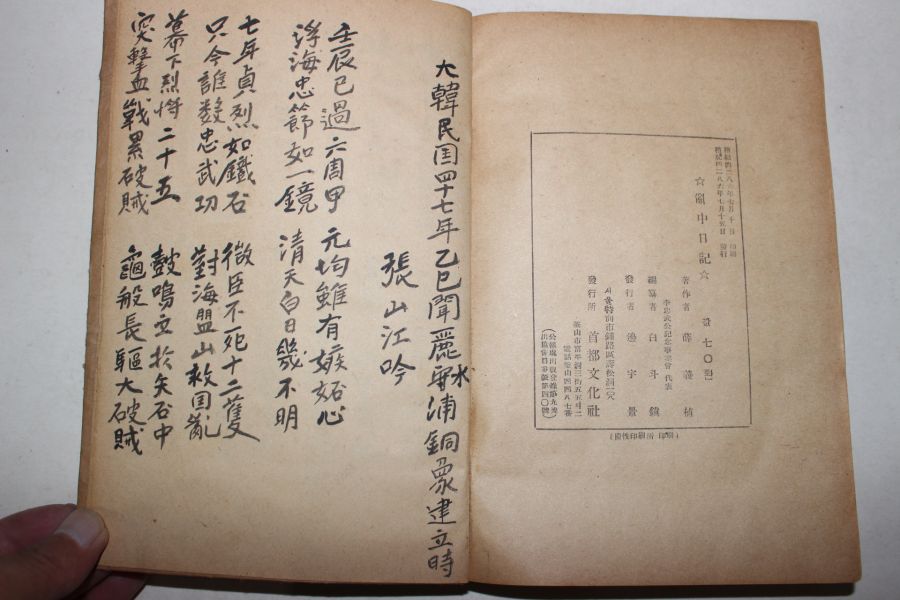 檀紀四二八六年七月十日 印刷
檀紀四二八六年七月十五日 發行
☆亂中日記☆ 값七〇圜
著作者 薛義植
李忠武公記念事業會 代表
編纂者 白斗鎭
發行者 邊宇景
서울特別市鍾路區壽松洞
發行所 首都文化社
釜山市富平洞三街五五ノ二
電話釜山四四八七番
(公報處出版登錄第九號)
(出協會員番號第四〇號)
印刷所 印刷)
大韓民国四十七年乙巳聞麗水浦銅象建立時
張山江吟
壬辰已過六周甲 元均雖有嫉妬心
浮海忠節如一鏡 清天白日幾不明
七年貞烈如鐵石 微臣不死十二隻
只今誰数忠武功 對海盟山救国亂
幕下烈将二十五 鼓鳴立於矢石中
突擊血戰累破賊 龜般長驅大破賊